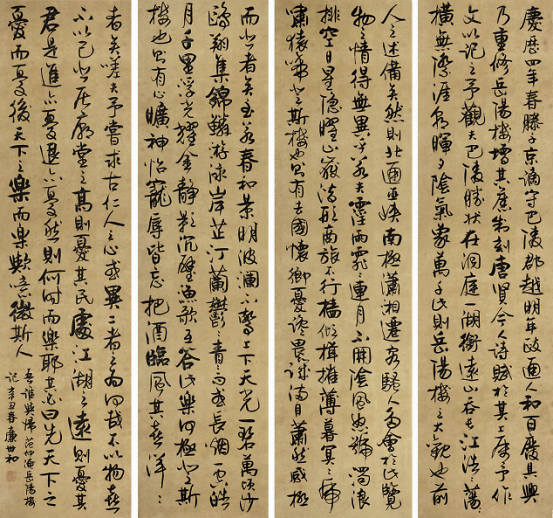 慶曆四年春滕子京謫守巴陵郡越明年政通人和百廢具興
乃重修岳陽樓增其舊制刻唐賢今人詩賦於其上屬予作
文以記之予觀夫巴陵勝狀在洞庭一湖銜遠山吞長江浩浩蕩蕩
橫無際涯朝暉夕陰氣象萬千此則岳陽樓之大觀也前
人之述備矣然則北通巫峽南極瀟湘遷客騷人多會於此覽
物之情得無異乎若夫霪雨霏霏連月不開陰風怒號濁浪
排空日星隱曜山嶽潛形商旅不行檣傾楫摧薄暮冥冥虎
嘯猿啼登斯樓也則有去國懷鄉憂讒畏譏滿目蕭然感極
而悲者矣至若春和景明波瀾不驚上下天光一碧萬頃沙
鷗翔集錦鱗游泳岸芷汀蘭鬱鬱青青而或長煙一空皓
月千里浮光耀金靜影沉璧漁歌互答此樂何極登斯
樓也則有心曠神怡寵辱皆忘把酒臨風其喜洋洋
者矣嗟夫予嘗求古仁人之心或異二者之為何哉不以物喜
不以己悲居廟堂之高則憂其民處江湖之遠則憂其
君是進亦憂退亦憂然則何時而樂耶其必曰先天下之
憂而憂後天下之樂而樂歟噫微斯人
吾誰與歸 范仲淹岳陽樓
記 辛丑春